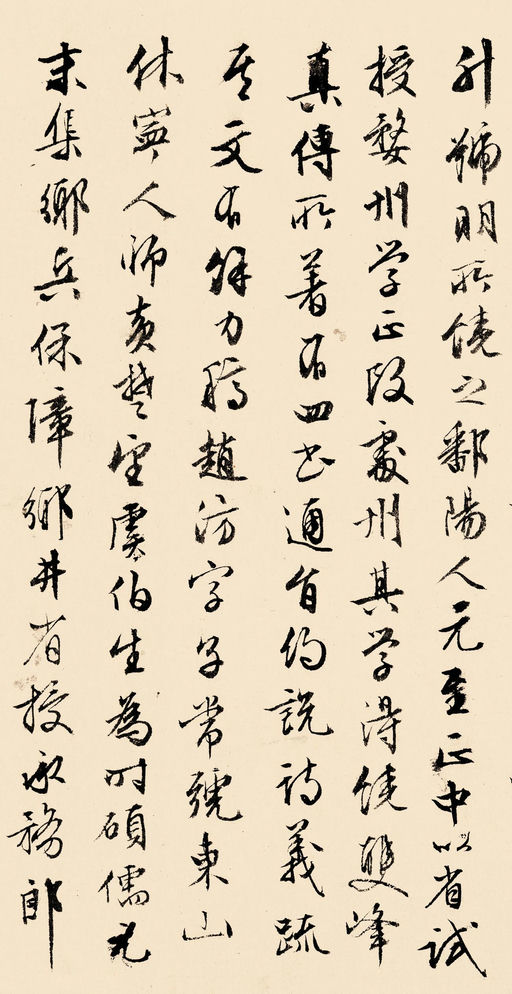 升號明所饒之鄱陽人元至正中以省試
授婺州学正改處州其学得饒雙峰
真傳所著有四书通旨约説詩義疏
其文有餘力 趙汸字子常號東山
休寧人师黄楚望虞伯生為时碩儒元
末集鄉兵保障鄉井省授承務郎